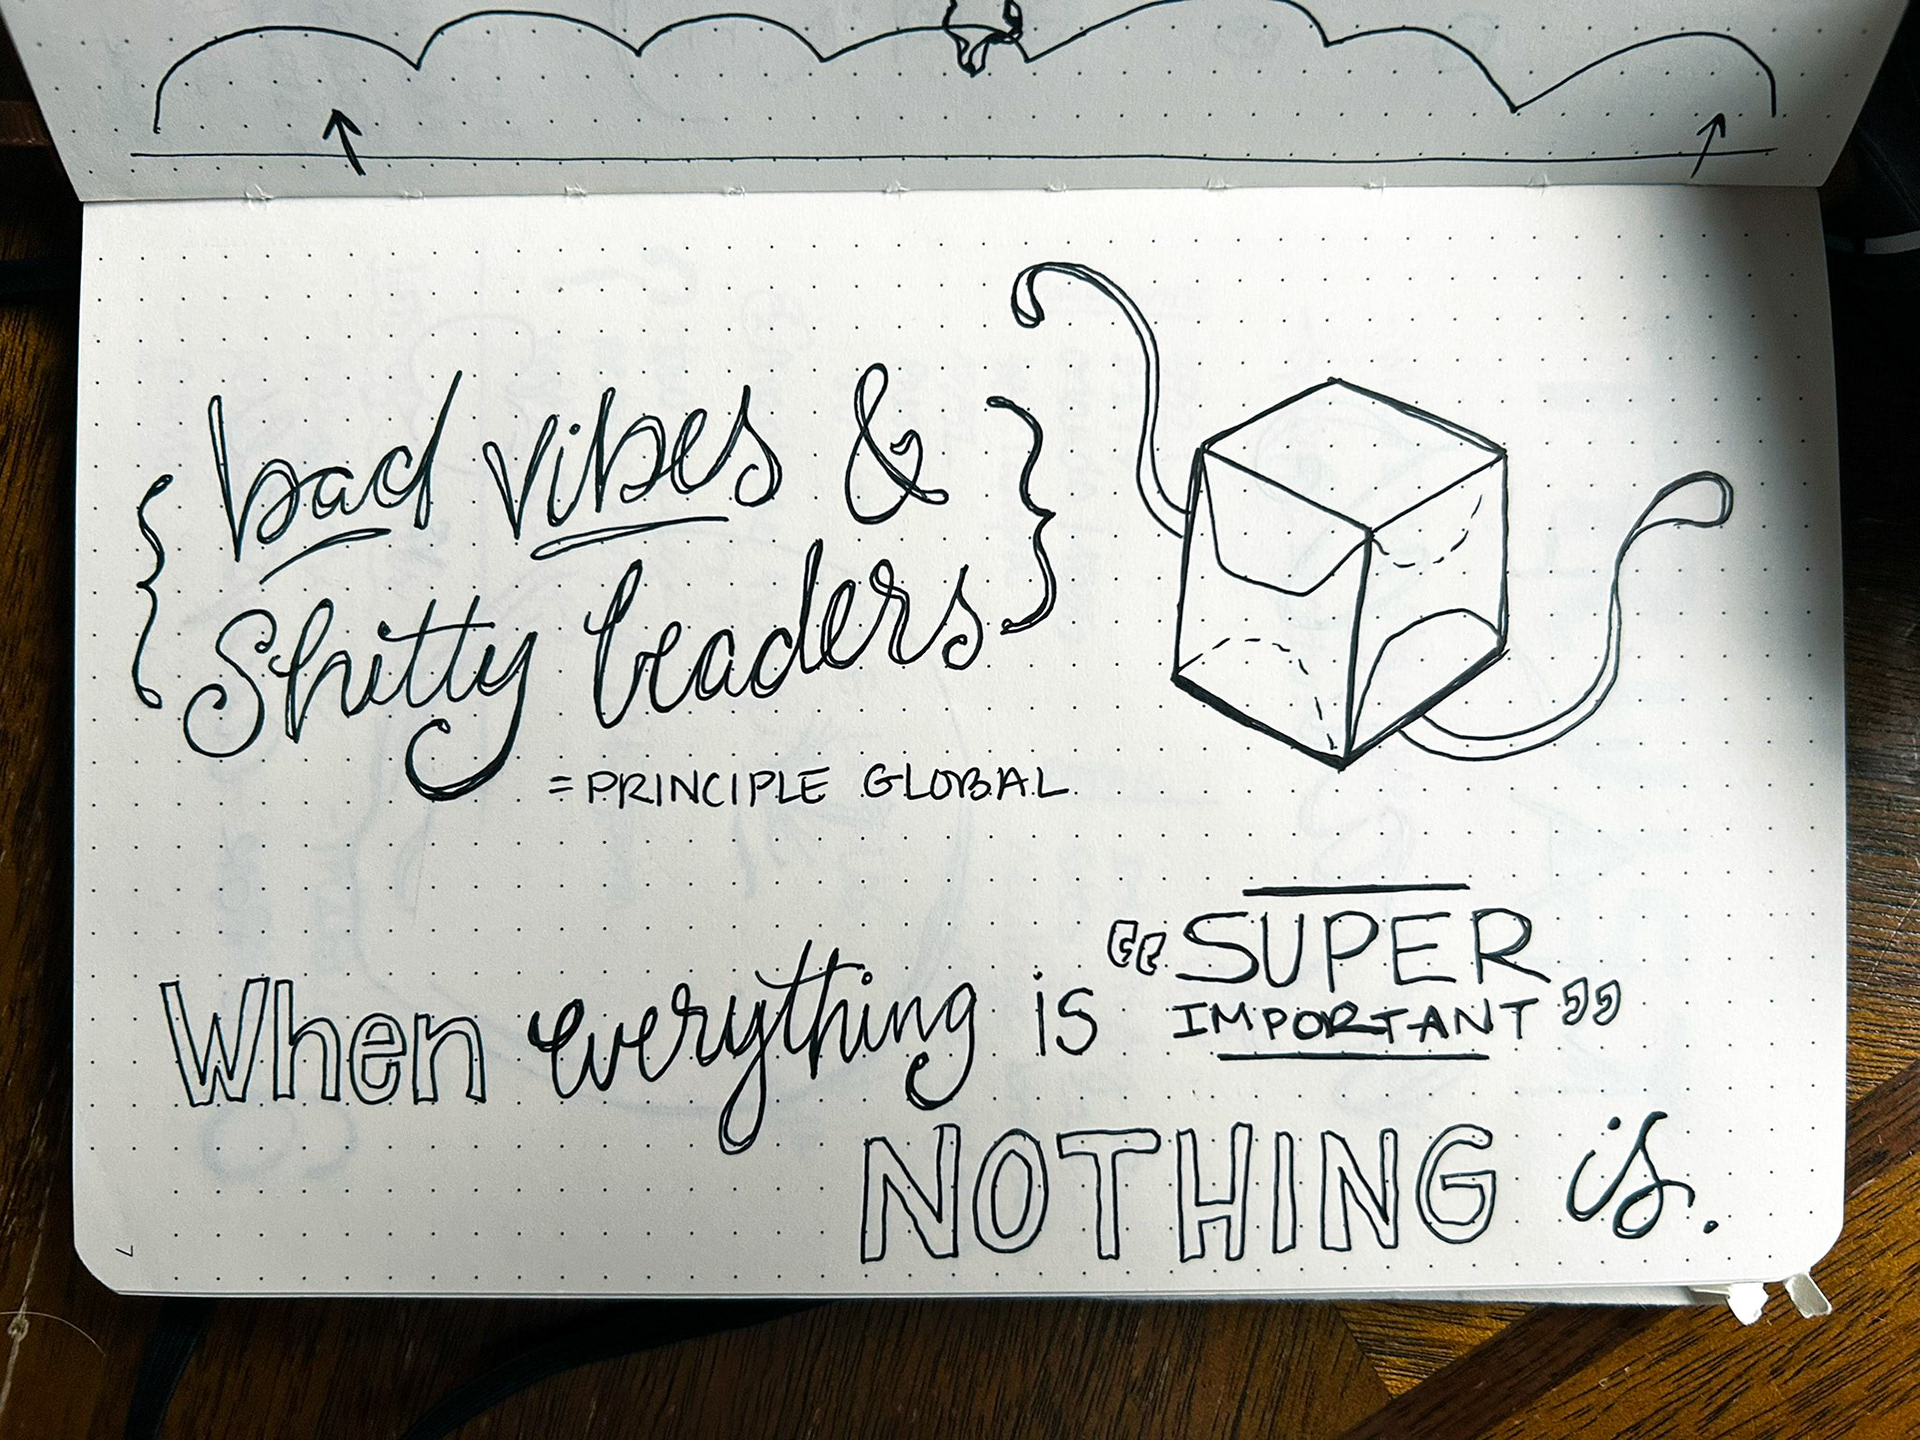 bad vibes &
Shitty leaders
= PRINCIPLE GLOBAL
When everything is "SUPER
IMPORTANT"
NOTHING is.